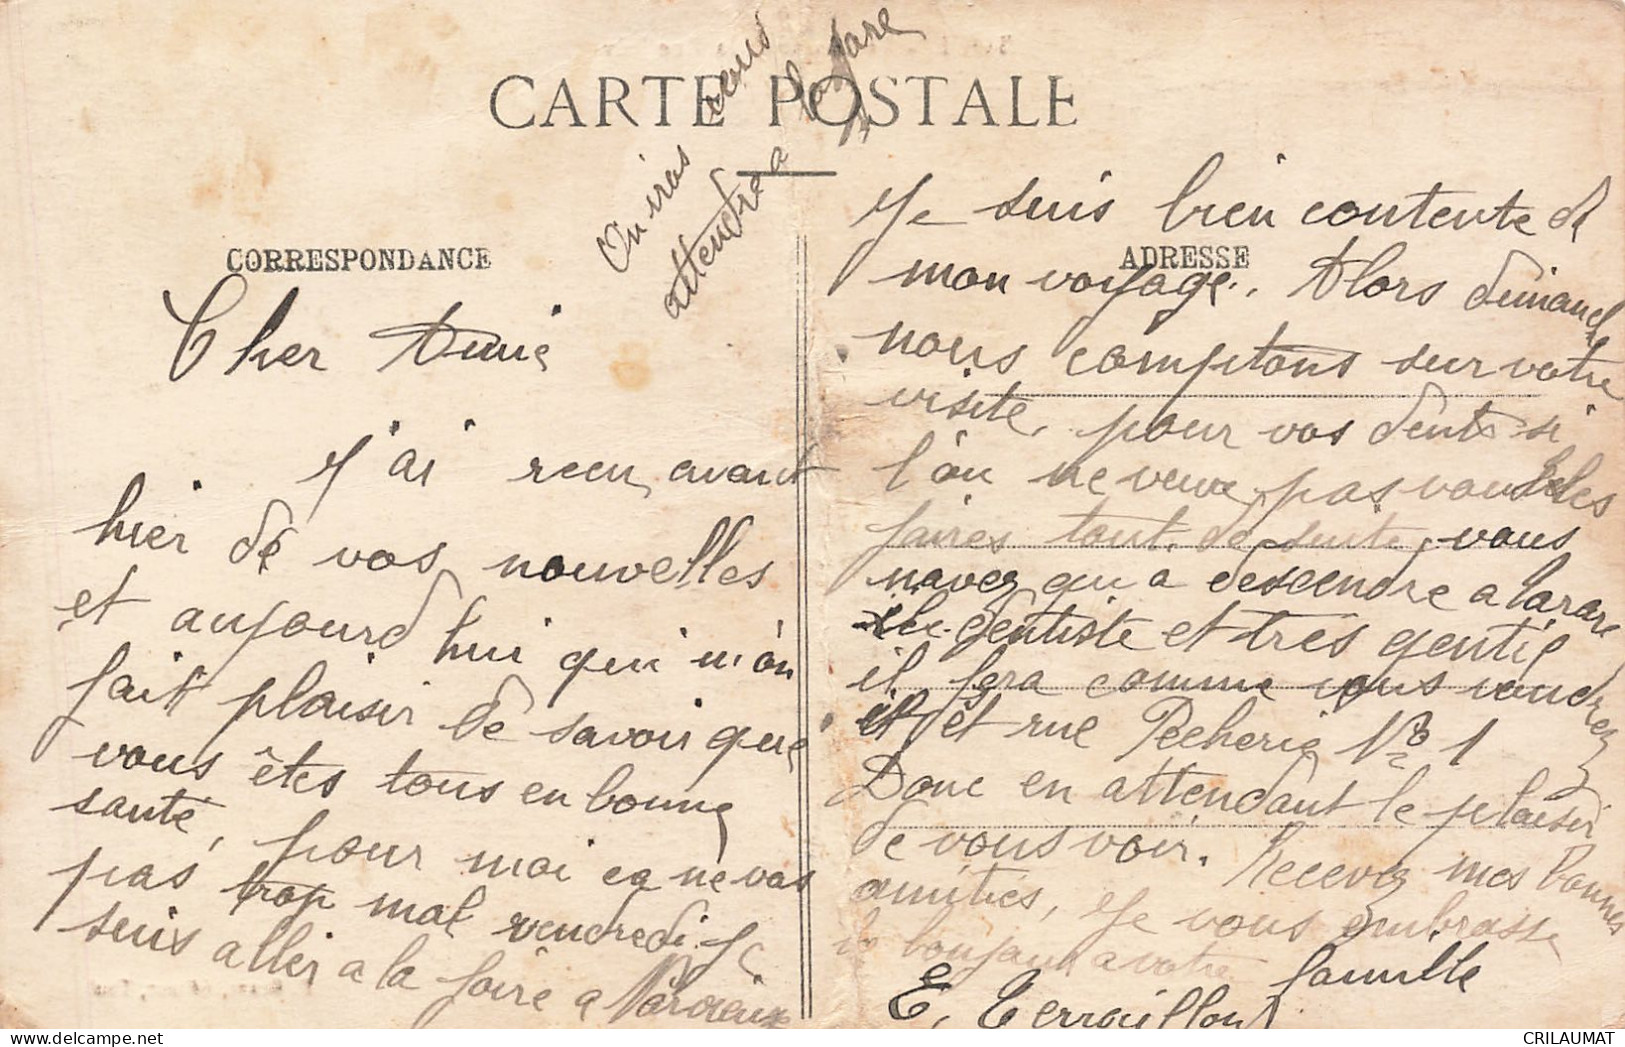 CARTE POSTALE
CORRESPONDANCE
ADRESSE
Cher Amie
J'ai recu, avant
hier de vos nouvelles
et aujourd hui qui m'on
fait plaisir de savoir que
vous êtes tous en bonne
santé, pour moi ca ne vas
pas trop mal vendredi Je
suis aller a la foire a
Je suis bien contente de
mon voyage. Alors dimanch
nous comptons sur votre
visite, pour vos dents si
l'on ne veux pas vous les
faires tout de suite, vous
navez qu a descendre a la rare
dentiste et très gentil
il fera comme vous voudrez
et rue Pecherie No 1
Donc en attendant le plaisir
de vous voir. Recevez mes bonnes
amitiés, Je vous embrasse
le bonjour a votre famille
E. Terraillon
On iras vous
attendre a la gare
CRILAUMAT